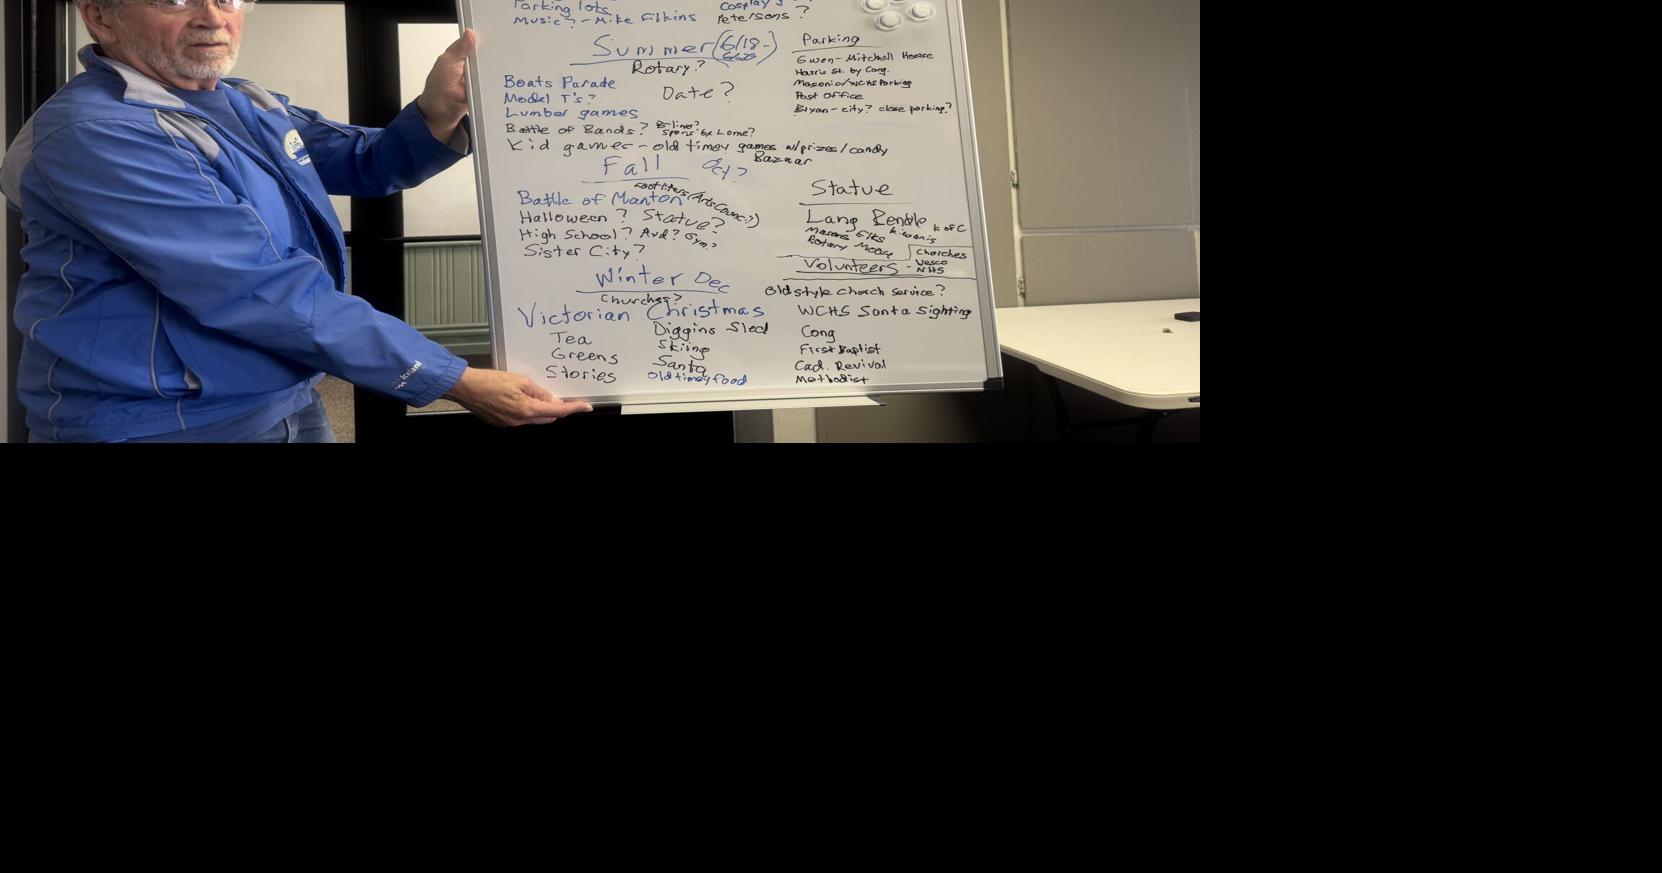 Parking lots
Music? - Mike Filkins
Cosplay
Petersons?
Summer (6/18 -
Rotary?
Boats Parade
Model T's?
Date?
Lumber games
Battle of Bands?
Kid games - old timey games w/prizes/candy
Bazaar
Fall
Footliters (Arts Council)
Battle of Manton
Halloween? Statue?
High School? Aud? Gym?
Sister City?
Winter Dec
Churches?
Victorian Christmas
Tea
Greens
Stories
Diggins Sled
Skiing
Santa
Old timey food
Parking
Gwen - Mitchell House
Harris St. by Cong.
Masonic/WCHS Parking
Post Office
Bryan - city? close parking?
Statue
Lang Bendle K of C
Masons Elks Kiwanis
Rotary Moose
Churches
Volunteers - Wesco
NHS
Old style church service?
WCHS Santa Sighting
Cong
First Baptist
Cad. Revival
Methodist